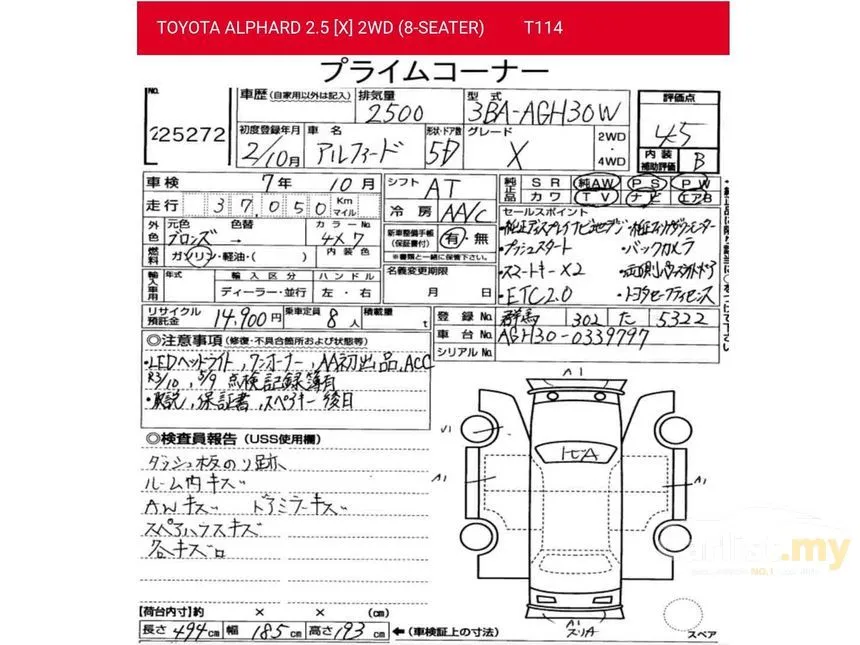 TOYOTA ALPHARD 2.5 [X] 2WD (8-SEATER) T114
プライムコーナー
No. 225272
車歴(自家用以外は記入) 排気量 2500 型式 3BA-AGH30W 評価点 4.5
初度登録年月 2/10月 車名 アルファード 形状・ドア数 5D グレード X 2WD・4WD 内装補助評価 B
車検 7年 10月 シフト AT 純正品 SR 純AW PS PW
走行 37,050 Km マイル 冷房 AA/C カワ TV ナビ エアB
外色 元色 ブロンズ 色替 → カラーNo. 4X7 内装色
新車整備手帳(保証書付) 有・無
※書類と一緒に保管下さい。
燃料 ガソリン・軽油・( )
セールスポイント
・純正ディスプレイナビ地デジ
・プッシュスタート ・バックカメラ
・スマートキー×2
・ETC2.0 ・トヨタセーフティセンス
名義変更期限 月 日
輸入車用 年式 輸入区分 ディーラー・並行 ハンドル 左・右
リサイクル預託金 14,900円 乗車定員 8人 積載量 t
登録No. 群馬 302 た 5322
車台No. AGH30-0339797
シリアルNo.
◎注意事項(修復・不具合箇所および状態等)
・LEDヘッドライト,ワンオーナー,AA初出品,ACC
R3/10,5/9 点検記録簿有
・取説,保証書,スペアキー後日
◎検査員報告(USS使用欄)
ダッシュ板のり跡
ルーム内キズ
AWキズ ドアミラーキズ
スペアハウスキズ
各キズ
A1
A1
A1
A1
【荷台内寸】約 × × (cm)
長さ 494cm 幅 185cm 高さ 193cm ←(車検証上の寸法)
スペア
carlist.my